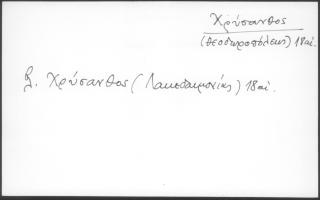 Χρύσανθος
(Θεοδωροπόλεως) 18 αἰ.
β. Χρύσανθος (Λακεδαιμονίας) 18 αἰ.